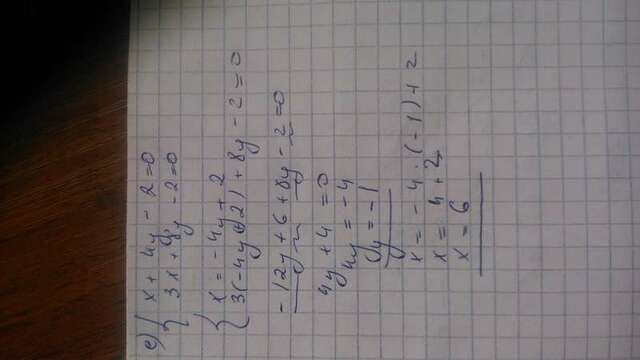 e) { x + 4y - 2 = 0
3x + 8y - 2 = 0
{ x = -4y + 2
3(-4y + 2) + 8y - 2 = 0
-12y + 6 + 8y - 2 = 0
4y + 4 = 0
4y = -4
y = -1
x = -4 · (-1) + 2
x = 4 + 2
x = 6